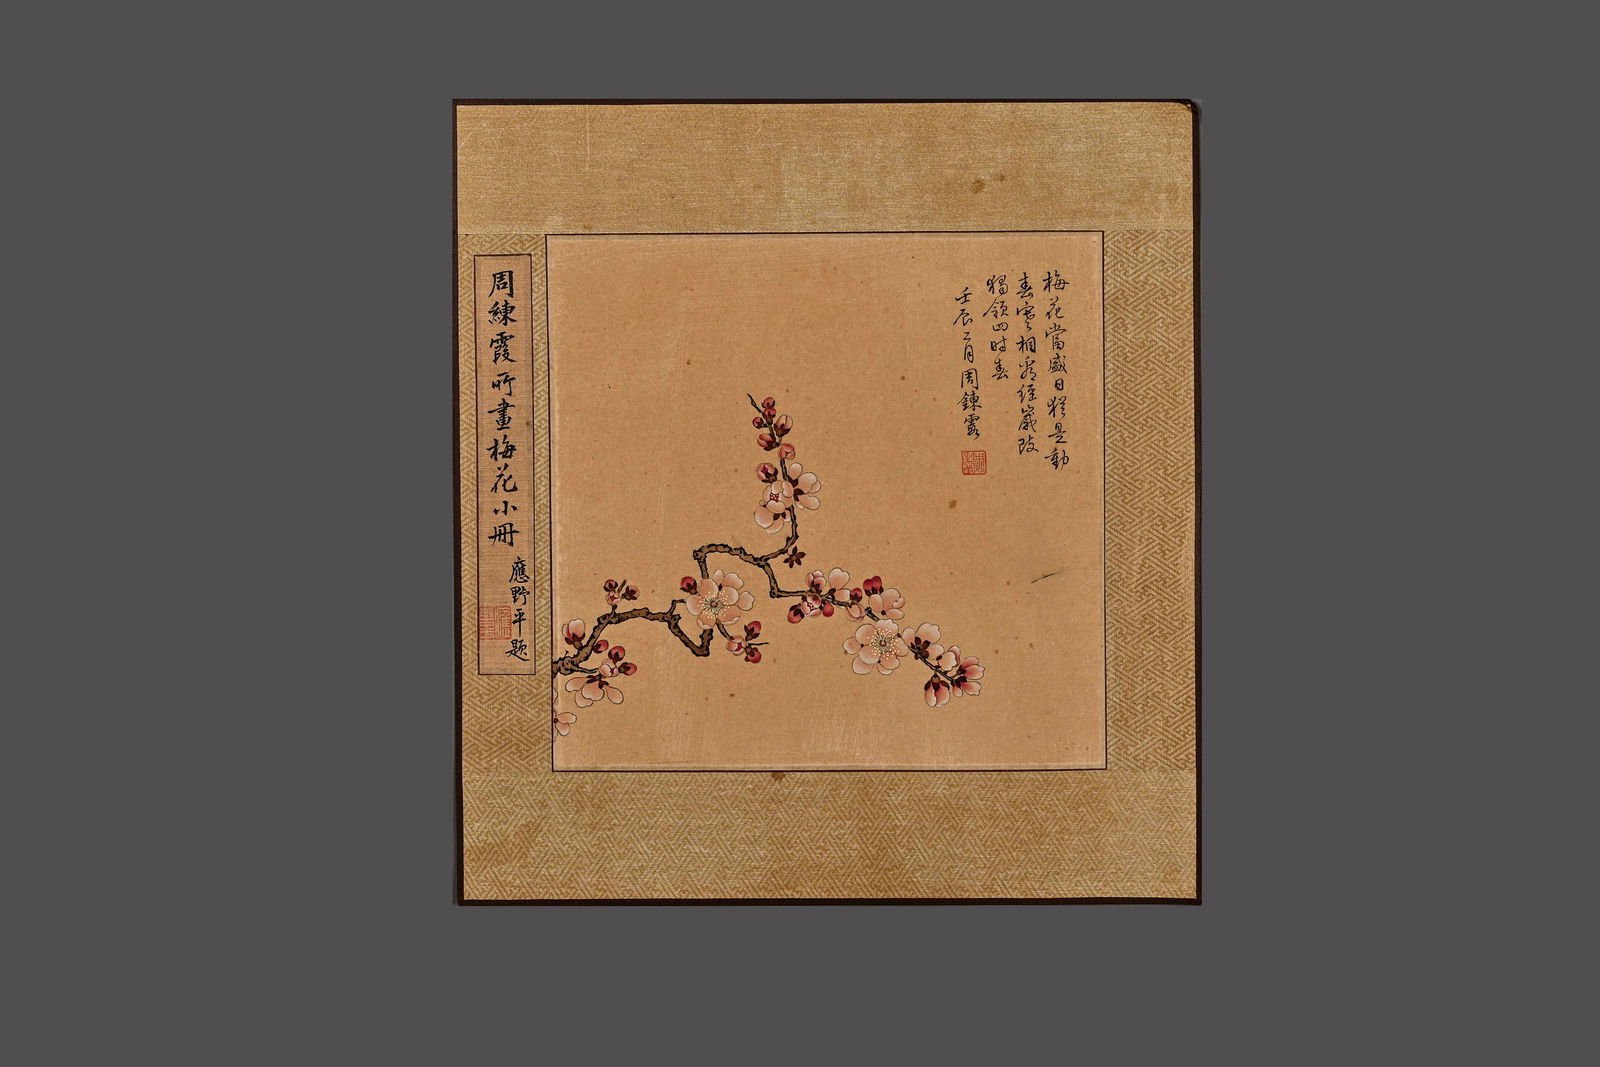 梅花當盛日猶是動
春寒相看經歲改
獨領四時春
壬辰二月周鍊霞
周練霞所畫梅花小冊
應野平題